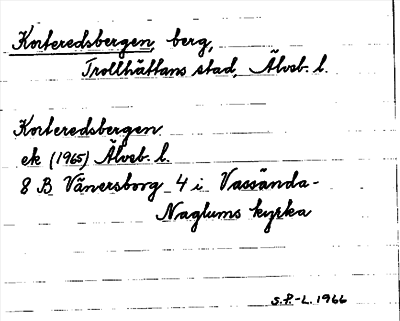 Korteredsbergen, berg,
Trollhättans stad, Älvsb. l.
Korteredsbergen
ek (1965) Älvsb. l.
8 B Vänersborg 4 i Vassända-
Naglums kyrka
S.P.-L. 1966